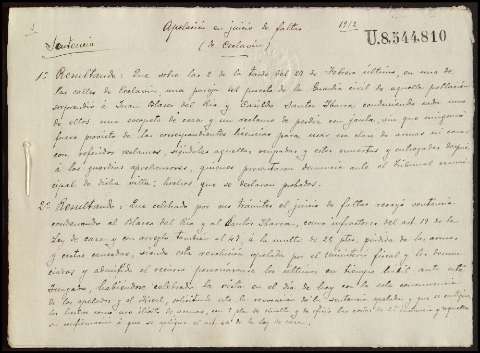 Apelación en juicio de faltas 1912
(de Ceclavín) U.8.544.810
Sentencia
1º Resultando: Que sobre las 2 de la tarde del 27 de Febrero último, en una de
las calles de Ceclavín, una pareja del puesto de la Guardia civil de aquella población
sorprendió á Juan Blasco del Río y Santos Ibarra conduciendo cada uno
de ellos una escopeta de caza y un reclamo de perdiz con jaula, sin que ninguno
fuera provisto de las correspondientes licencias para usar esa clase de armas ni cazar
con referidos reclamos, siéndoles aquellas ocupadas, y estos muertos y entregadas después
á los guardias aprehensores, quienes presentaron denuncia ante el Tribunal muni-
cipal de dicha villa; hechos que se declaran probados.
2º Resultando: Que celebrado por sus trámites el juicio de faltas recayó sentencia
condenando al Blasco del Río y al Santos Ibarra, como infractores del art. 19 de la
Ley de caza y con arreglo también al 49, á la multa de 25 ptas, pérdida de las armas
y costas causadas, siendo esta resolución apelada por el ministerio fiscal y los denun-
ciados y admitido el recurso personáronse los últimos en tiempo hábil ante este
Juzgado, habiéndose celebrado la vista en el día de hoy con la sola concurrencia
de los apelados y el fiscal, solicitando este la revocación de la sentencia apelada y que se
los hechos como uso ilícito de armas, en de multa y de oficio las costas de
se aplique el art. de la Ley de caza.